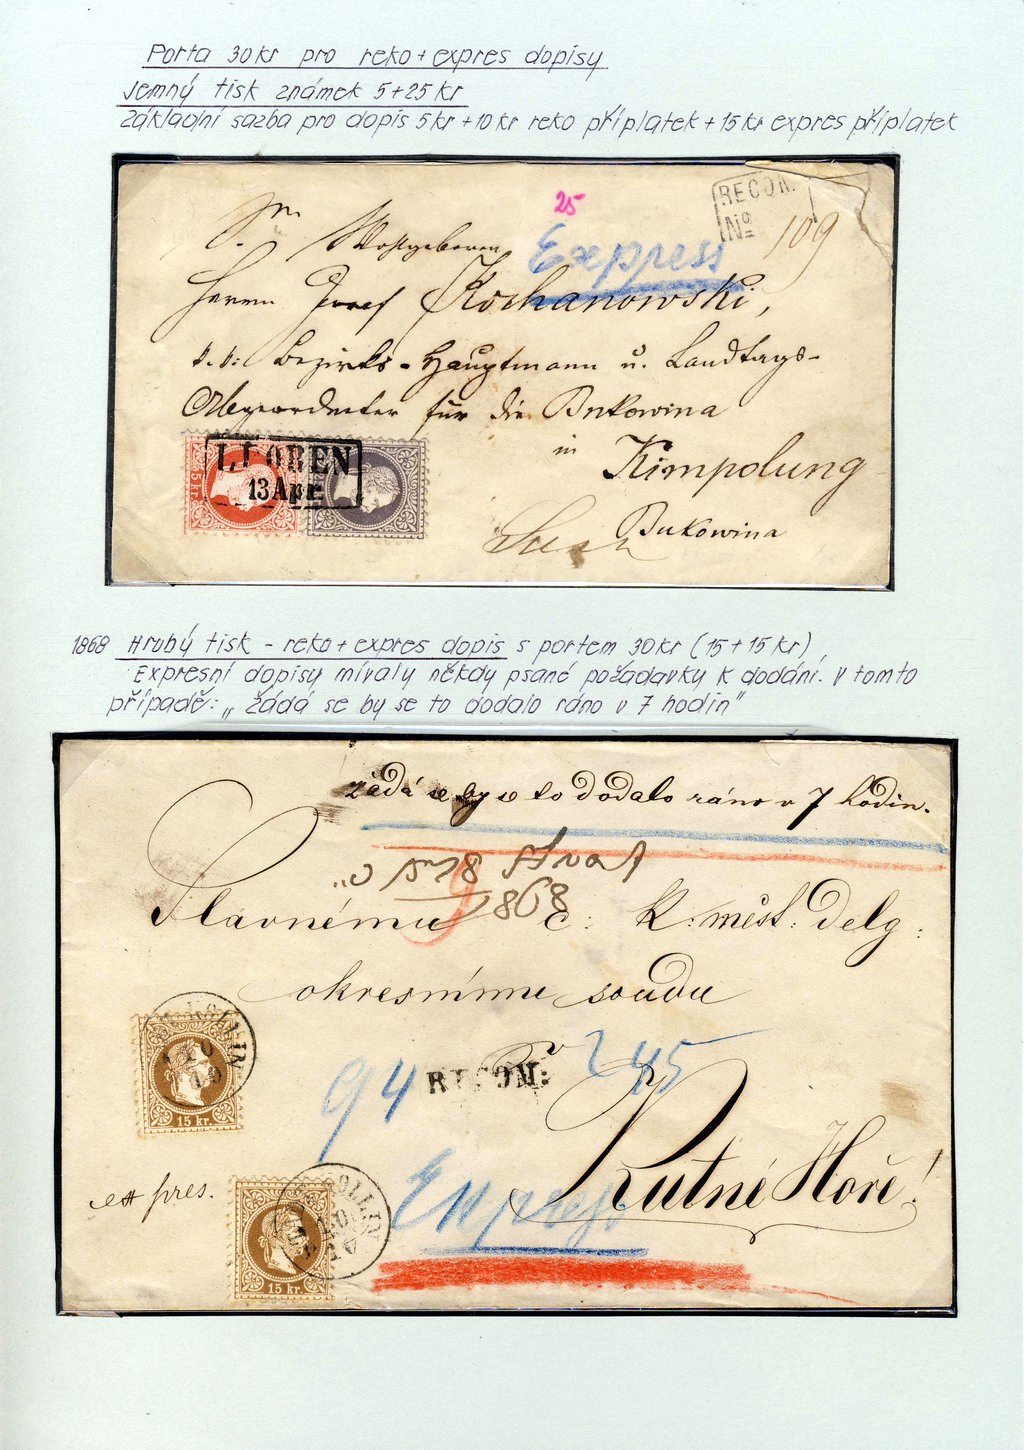 Porta 30 kr pro reko + expres dopisy
Jemný tisk známek 5+25 kr
Základní sazba pro dopis 5 kr + 10 kr reko příplatek + 15 kr expres příplatek
25
RECOM.
Nº 109
Express
Wohlgeboren
Herrn Josef Kochanowski,
k. k: Bezirks-Hauptmann u. Landtags-
Abgeordneter für die Bukowina
in Kimpolung
Bukowina
13 Apr.
1868 Hrubý tisk - reko + expres dopis s portem 30 kr (15 + 15 kr),
Expresní dopisy mívaly někdy psané požadavky k dodání. V tomto
případě: „ žádá se by se to dodalo ráno v 7 hodin"
žádá se by se to dodalo ráno v 7 hodin.
1868
Slavnému c: k: měst: delg:
okresnímu soudu
94 RECOM: 245
Kutné Hoře!
15 kr.
Express
ex pres.
15 kr.